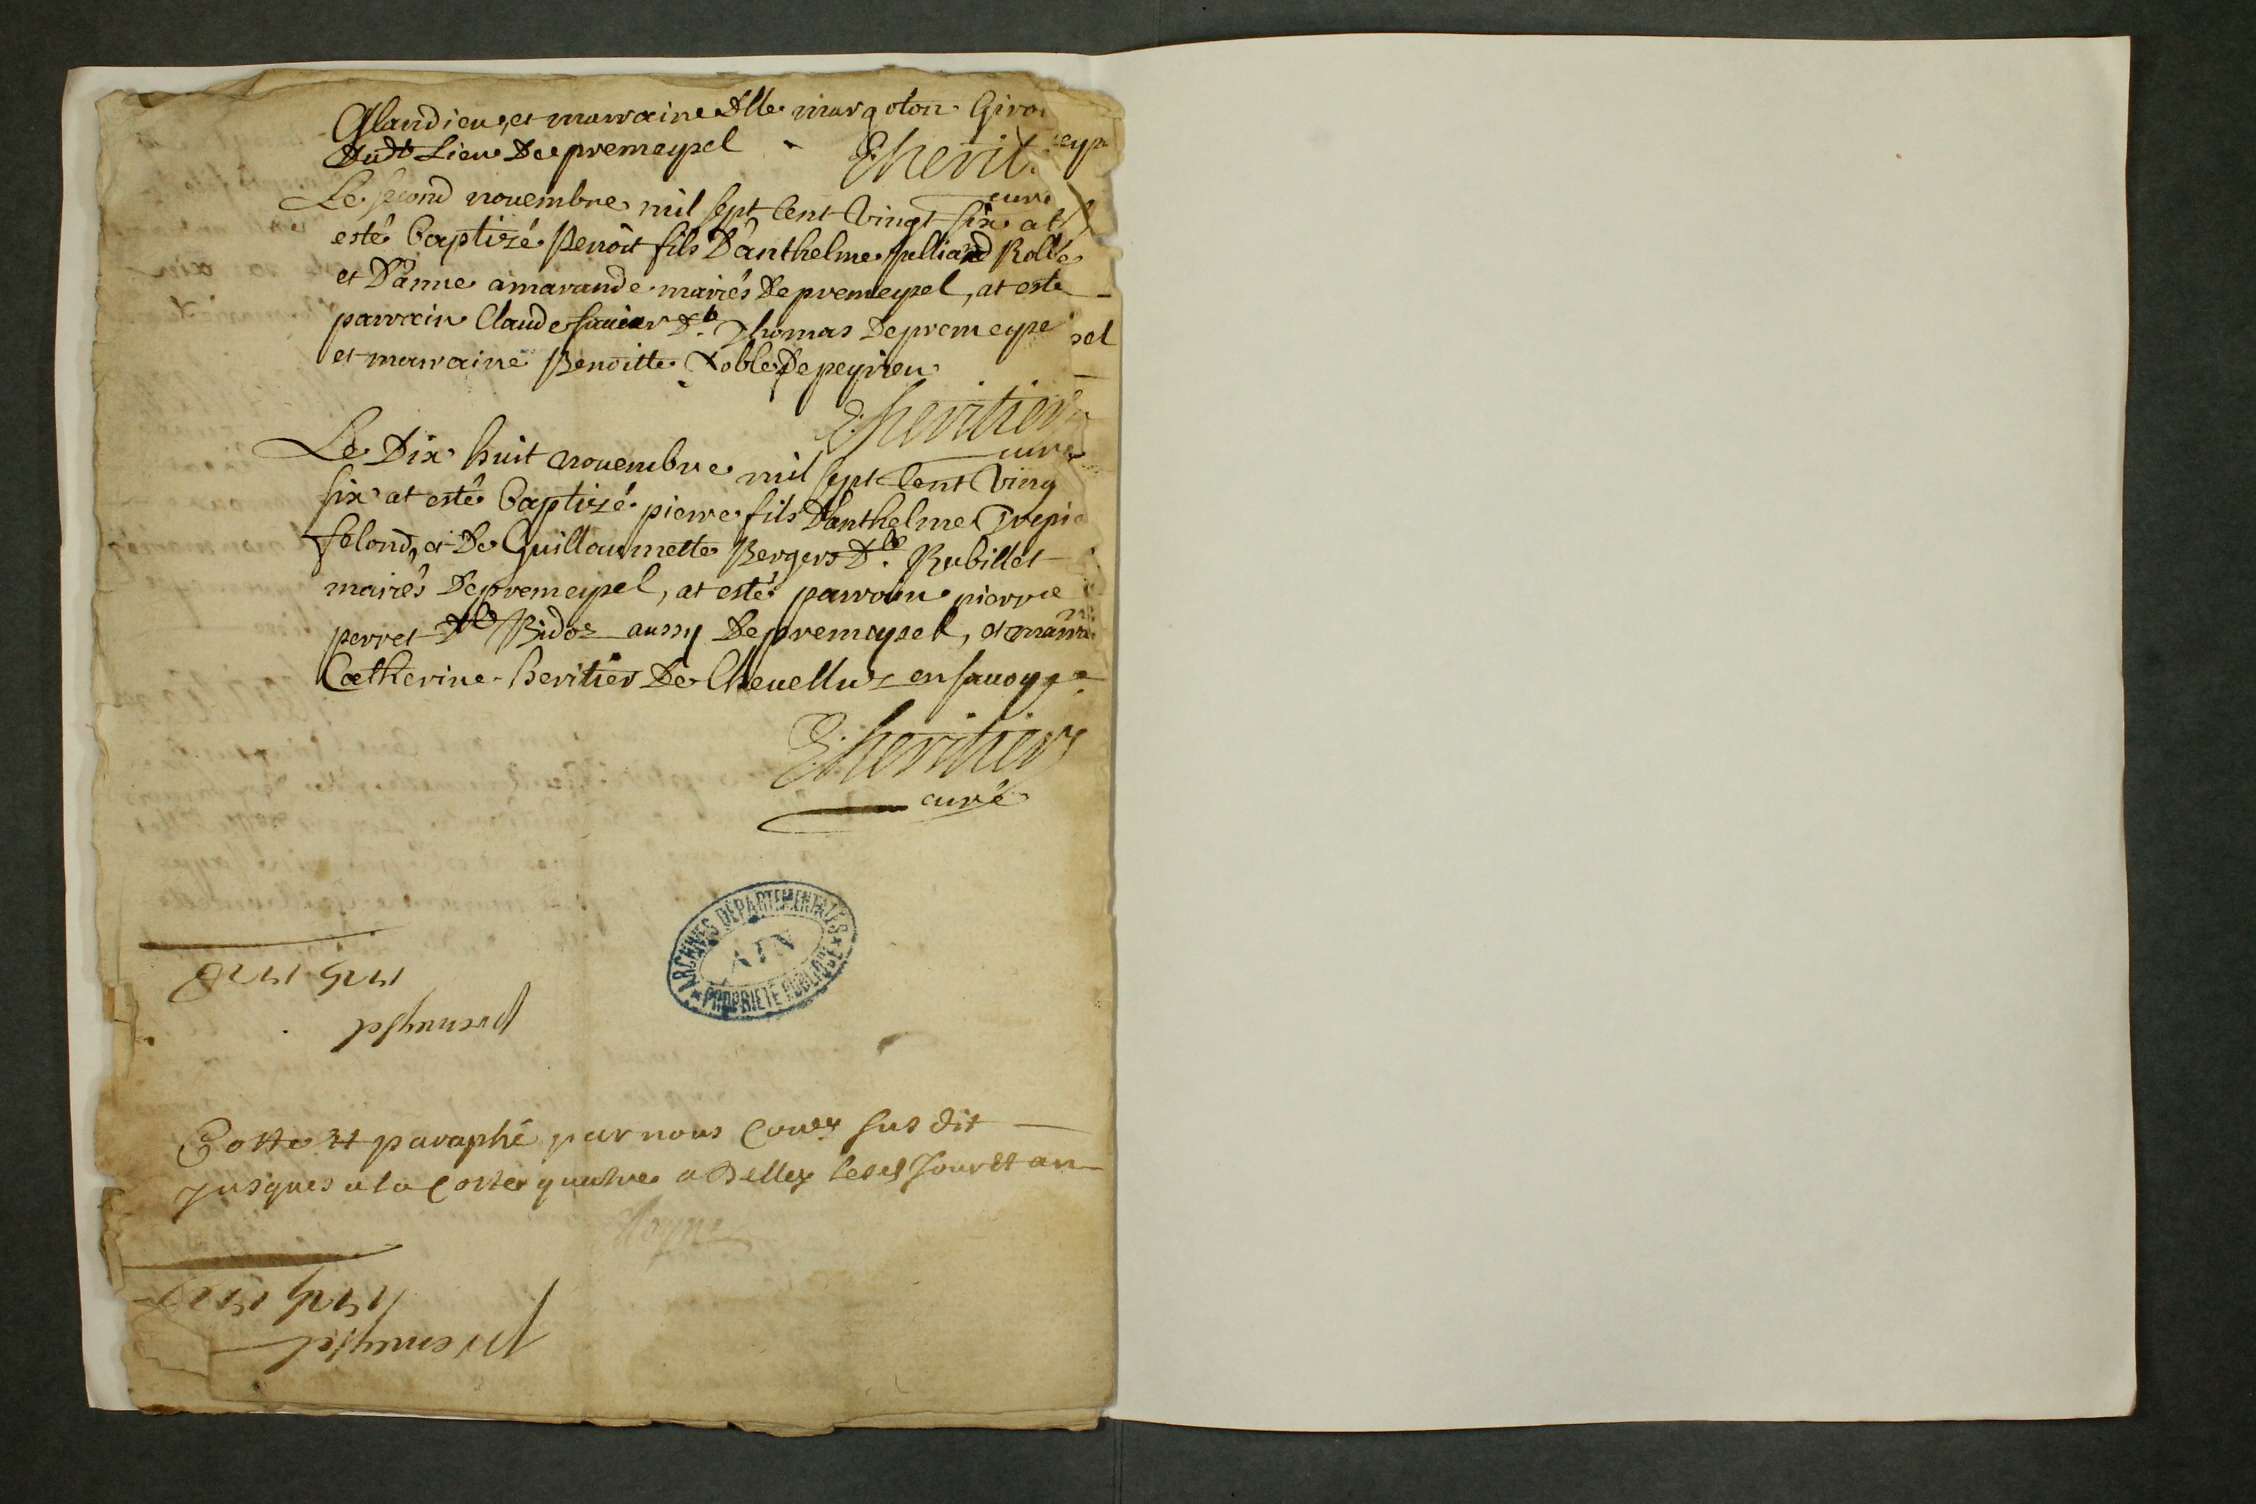 Glandieu, et marraine dlle margoton Giro
dudt Lieu de premeysel
Eherit
eyp
curé
Le second novembre mil sept cent vingt six at
esté baptizé Benoit fils d'anthelme julliand Rolle
et d'anne amarande mariés de premeysel, at este
parrain Claude savier dt. Thomas de premeyse
sel
et marraine Benoitte Noble de peyrieu
Eheritier
curé
Le dix huit novembre mil sept cent ving
six at esté baptizé pierre fils d'anthelme Trepie
felond, et de Guillaumette Bergers dt. Rubillet
mariés de premeysel, at esté parrain pierre
perret dt Bidoz aussy de premeysel, et marra
Catherine heritier de Cheveluz en savoye
Eheritier
curé
ARCHIVES DÉPARTEMENTALES
AIN
PROPRIÉTÉ PUBLIQUE
Premeysel
Cotté et paraphé par nous Couer susdit
jusques a la cotte quatre a Belley lesd jour et an
Premeysel